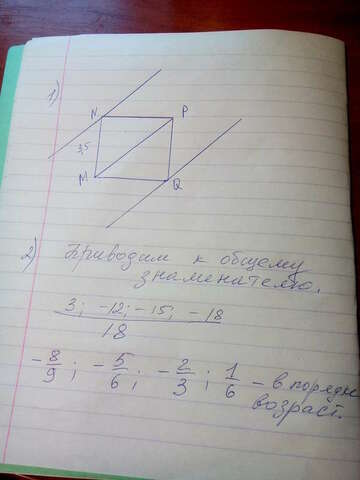 1)
N P
3,5
M Q
2) Приводим к общему
знаменателю.
3; -12; -15; -18
18
-8/9; -5/6; -2/3; 1/6 - в порядке
возраст.